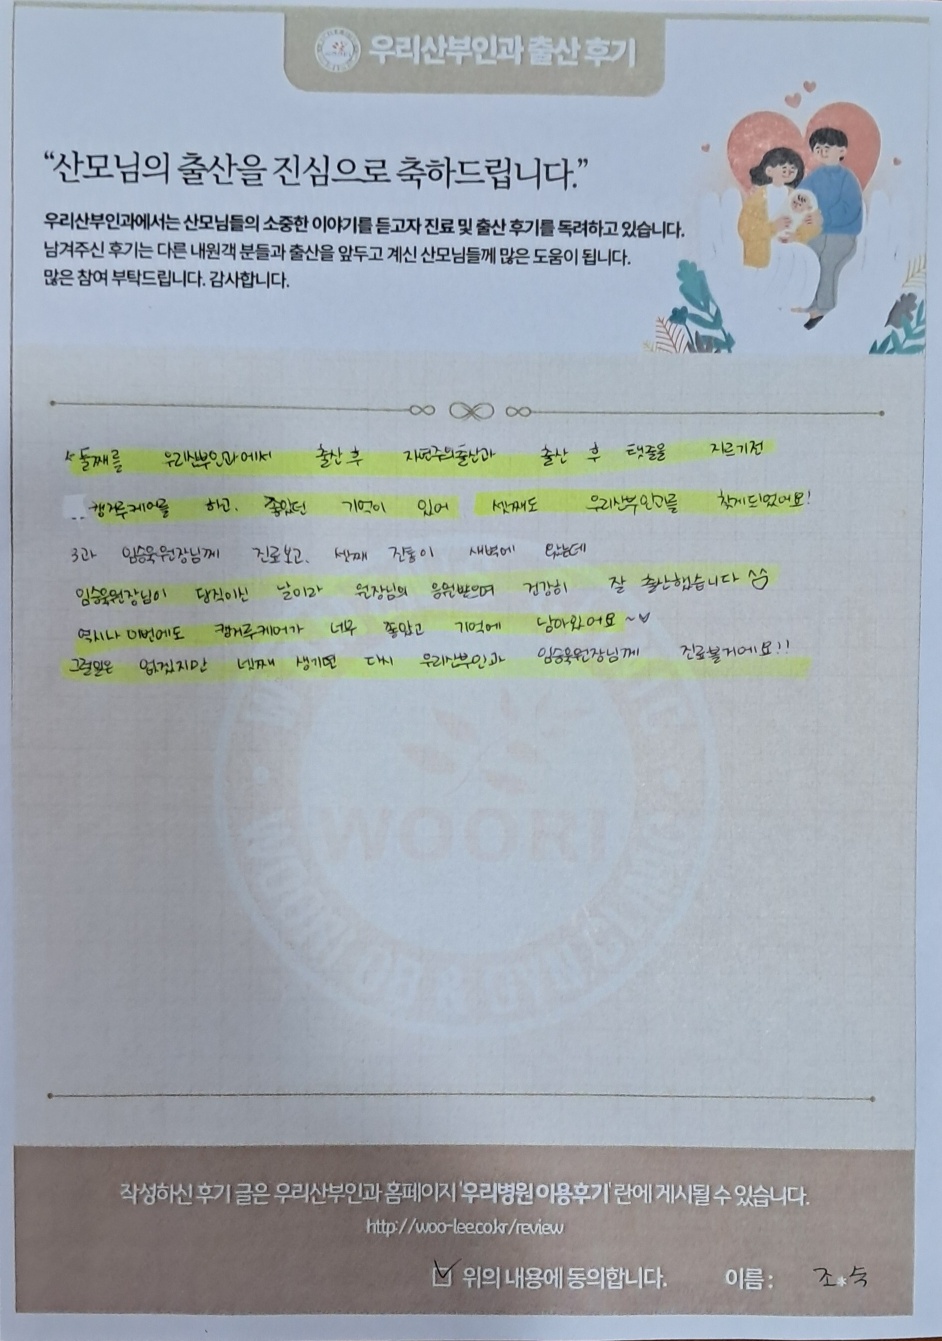 우리산부인과 출산 후기
“산모님의 출산을 진심으로 축하드립니다.”
우리산부인과에서는 산모님들의 소중한 이야기를 듣고자 진료 및 출산 후기를 독려하고 있습니다.
남겨주신 후기는 다른 내원객 분들과 출산을 앞두고 계신 산모님들께 많은 도움이 됩니다.
많은 참여 부탁드립니다. 감사합니다.
둘째를 우리산부인과에서 출산 후 자연주의출산과 출산 후 탯줄을 자르기전
캥거루케어를 하고, 좋았던 기억이 있어 셋째도 우리산부인과를 찾게되었어요!
3과 임승욱원장님께 진료보고, 셋째 진통이 새벽에 왔는데
임승욱원장님이 당직이신 날이라 원장님의 응원받으며 건강히 잘 출산했습니다 ^^
역시나 이번에도 캥거루케어가 너무 좋았고 기억에 남아있어요~♥
그럴일은 없겠지만 넷째 생기면 다시 우리산부인과 임승욱원장님께 진료볼거에요!!
WOORI
WOORI OB & GYN CLINIC
작성하신 후기 글은 우리산부인과 홈페이지 '우리병원 이용후기' 란에 게시될 수 있습니다.
http://woo-lee.co.kr/review
위의 내용에 동의합니다. 이름 : 조*숙